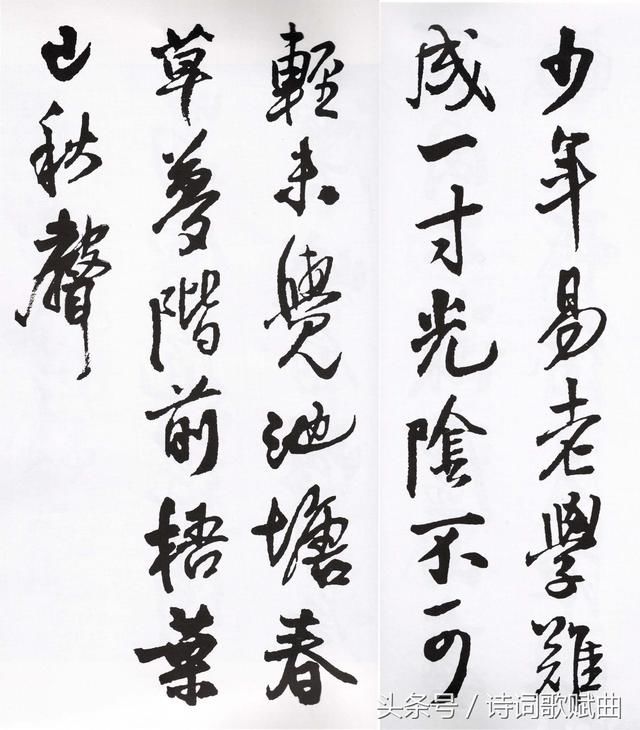 少年易老學難
成一寸光陰不可
輕未覺池塘春
草夢階前梧葉
已秋聲
头条号 / 诗词歌赋曲